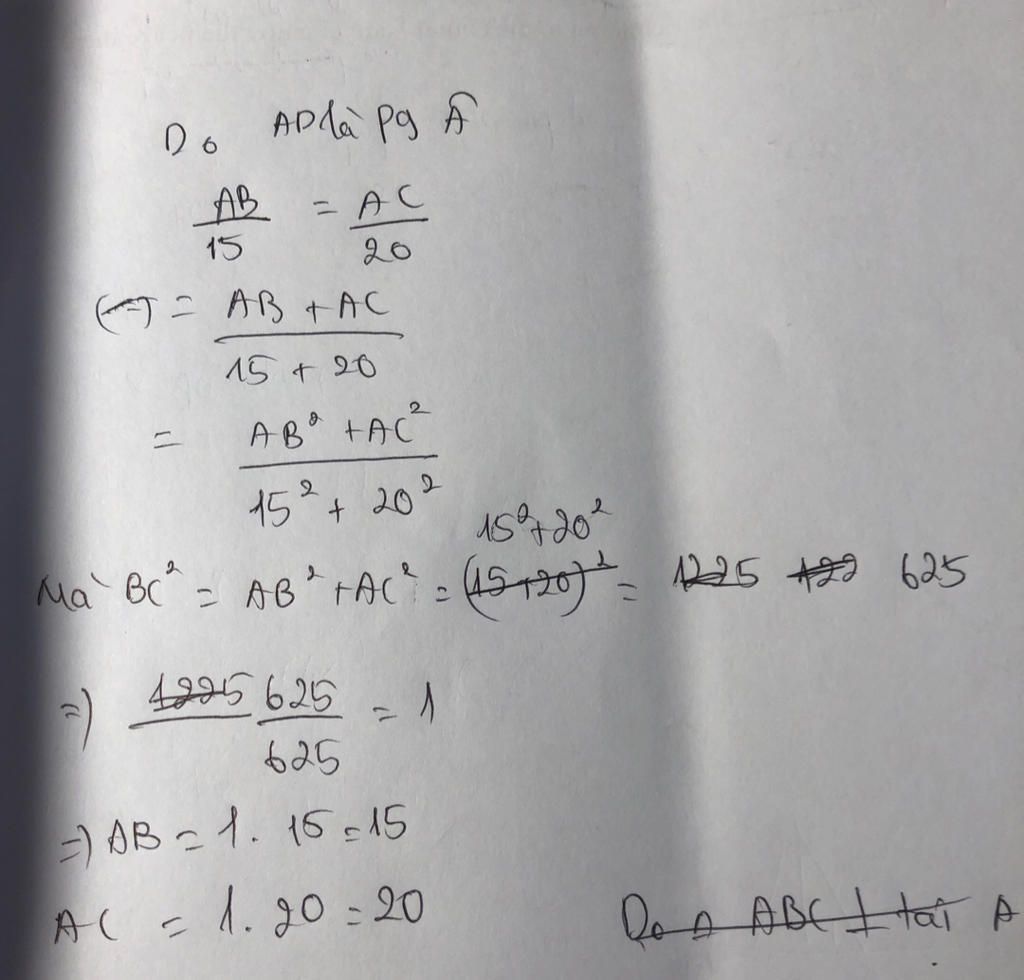 Do AD là pg Â
AB/15 = AC/20
(=) = AB + AC / 15 + 20
= AB² + AC² / 15² + 20²
15² + 20²
Mà BC² = AB² + AC² = (15+20)² = 1225 122 625
=) 1225 625/625 = 1
=) AB = 1. 15 = 15
AC = 1. 20 = 20
Do Δ ABC ⊥ tại A